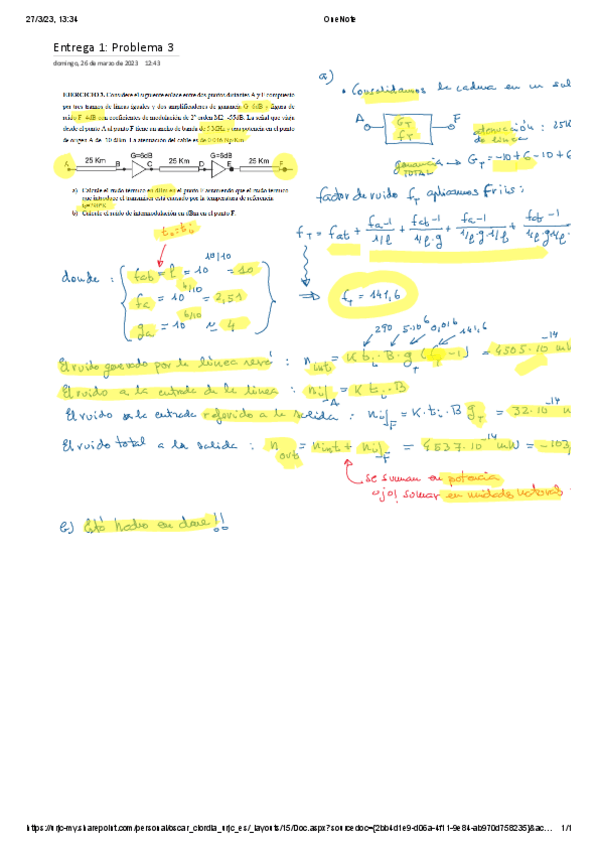 27/3/23, 13:34
OneNote
Entrega 1: Problema 3
domingo, 26 de marzo de 2023 12:43
EJERCICIO 3. Considere el siguiente enlace entre dos puntos distantes A y F compuesto
por tres tramos de líneas iguales y dos amplificadores de ganancia G=6dB y figura de
ruido F=4dB con coeficientes de modulación de 2º orden M2=-55dB. La señal que viaja
desde el punto A al punto F tiene un ancho de banda de 5MHz y una potencia en el punto
de origen A de -10 dBm. La atenuación del cable es de 0.046 Np/Km
A 25 Km B G=6dB C 25 Km D G=6dB E 25 Km F
a) Calcule el ruido térmico en dBm en el punto F asumiendo que el ruido térmico
que introduce el transmisor está causado por la temperatura de referencia
b) Calcule el ruido de intermodulación en dBm en el punto F.
a)
• Consolidamos la cadena en un sol
A G_T f_T F
atenuación : 25K
de línea
ganancia TOTAL → G_T = -10+6-10+6
factor de ruido f_T aplicamos Friis:
f_T = f_at + (f_a-1)/(1/l) + (f_at-1)/(1/l·g) + (f_a-1)/(1/l·g·1/l) + (f_at-1)/(1/l·g·1/l
t_o=t_i
donde : f_at = l = 10^(10/10) = 10
f_a = 10^(4/10) = 2,51
g_a = 10^(6/10) ≈ 4
⇒ f_T = 141,6
290 5·10^6 0,016 141,6
El ruido generado por la línea será : n_int = K t_i·B·g_T (f_T-1) = 4505·10^-14 mW
El ruido a la entrada de la línea : n_i]_A = K t_i·B
El ruido a la entrada referido a la salida : n_i]_F = K·t_i·B g_T = 32·10^-14
El ruido total a la salida : n_out = n_int + n_i]_F = 4537·10^-14 mW = -103
se suman en potencia
ojo! sumar en unidades naturales
b) Está hecho en clase!!
https://urjc-my.sharepoint.com/personal/oscar_ciordia_urjc_es/_layouts/15/Doc.aspx?sourcedoc={2bb4d1e9-d06a-4f11-9e84-ab970d758235}&ac…
1/1